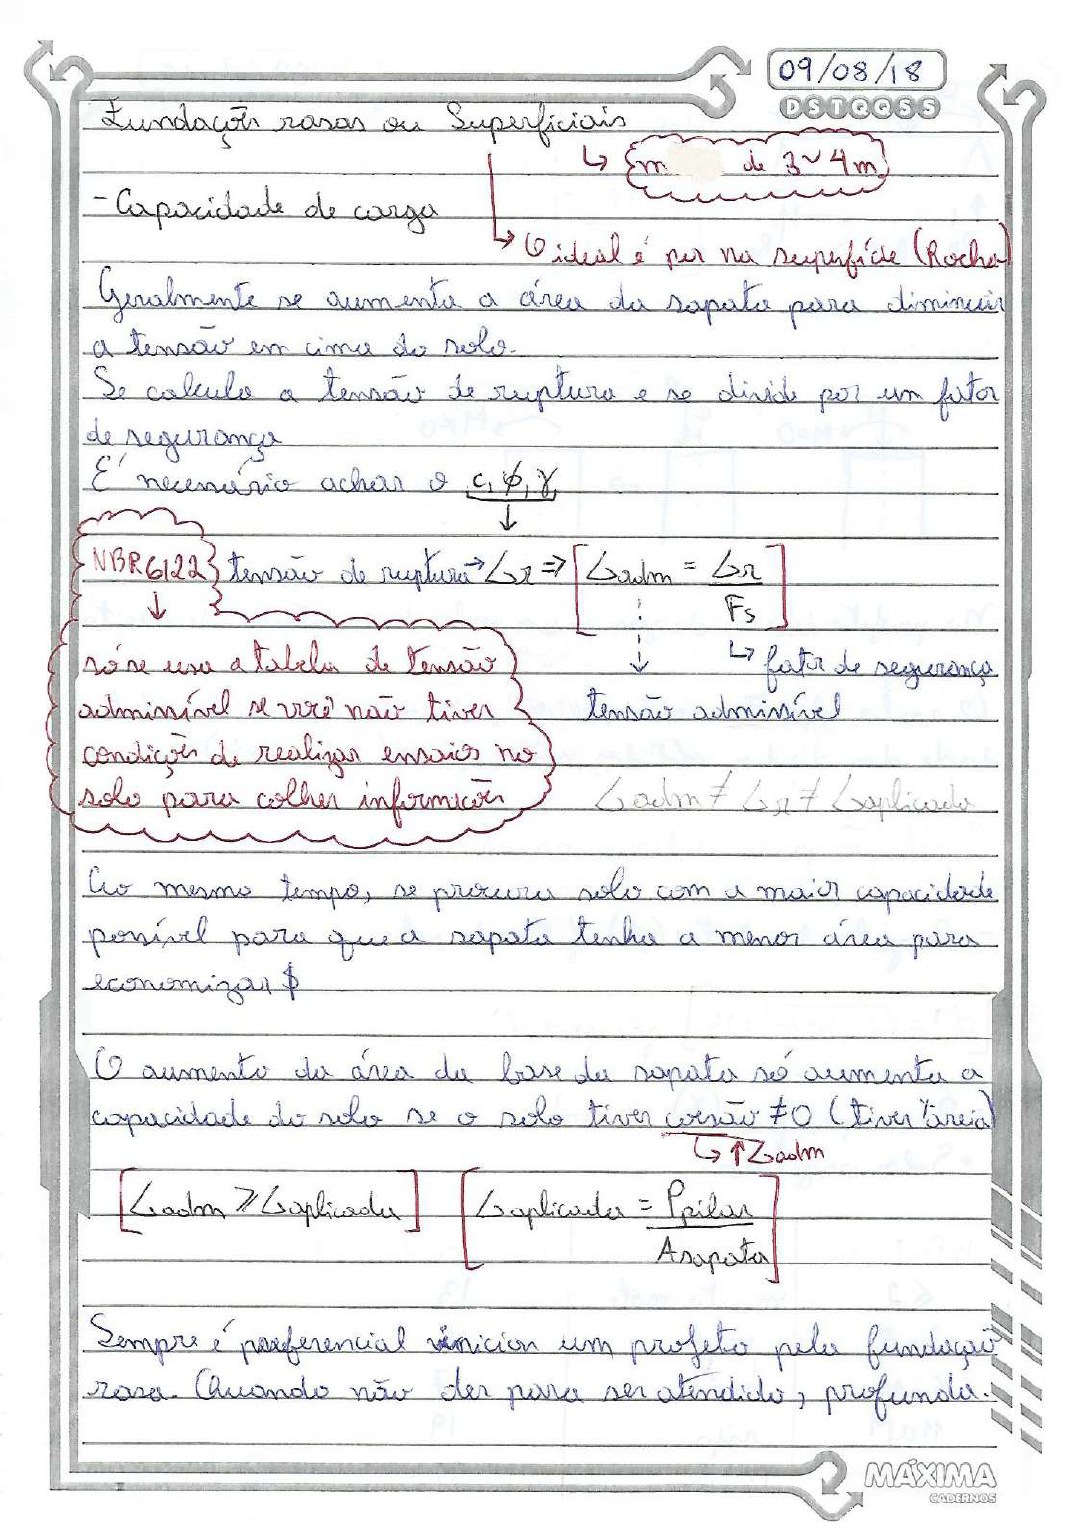 09/08/18
DSTQQSS
Fundações rasas ou Superficiais
↳ m de 3~4m
- Capacidade de carga
↳ O ideal é por na superfície (Rocha)
Geralmente se aumenta a área da sapata para diminuir
a tensão em cima do solo.
Se calcula a tensão de ruptura e se divide por um fator
de segurança
É necessário achar o c, ϕ, γ
NBR6122
tensão de ruptura → σr ⇒ [σadm = σr / Fs]
↳ fator de segurança
tensão admissível
só se usa a tabela de tensão
admissível se você não tiver
condições de realizar ensaios no
solo para colher informações
σadm ≠ σr ≠ σaplicada
Ao mesmo tempo, se procura solo com a maior capacidade
possível para que a sapata tenha a menor área para
economizar $
O aumento da área da base da sapata só aumenta a
capacidade do solo se o solo tiver coesão ≠ 0 (tiver % areia)
↳ ↑σadm
[σadm ≥ σaplicada] [σaplicada = Ppilar / Asapata]
Sempre é preferencial iniciar um projeto pela fundação
rasa. Quando não der para ser atendido, profunda.
MÁXIMA
CADERNOS